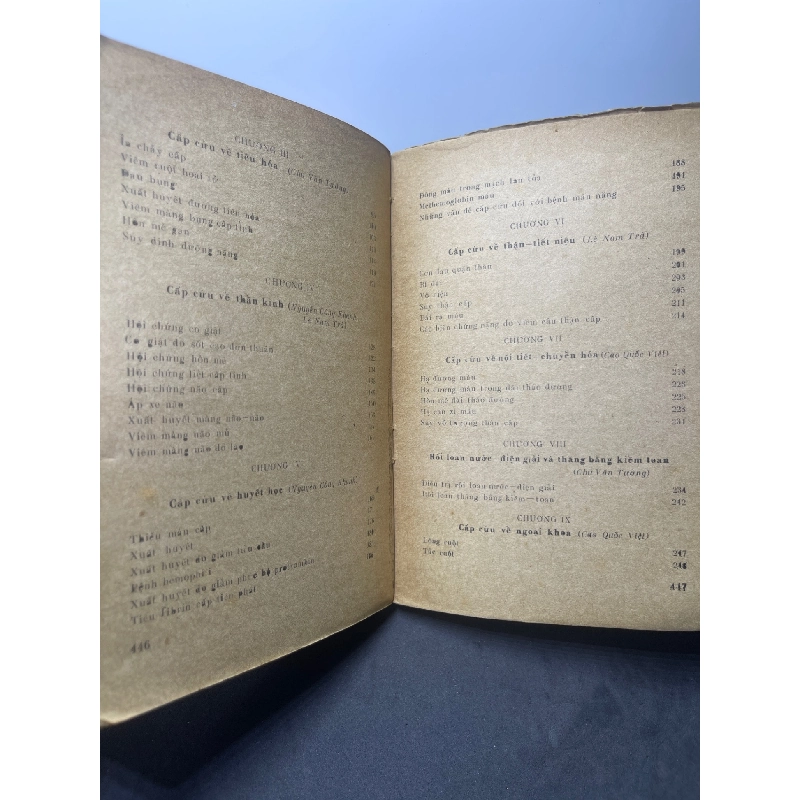 CHƯƠNG III
Cấp cứu về tiêu hóa (Chu Văn Tường)
Ỉa chảy cấp
Viêm ruột hoại tử
Đau bụng
Xuất huyết đường tiêu hóa
Viêm màng bụng cấp tính
Hôn mê gan
Suy dinh dưỡng nặng
CHƯƠNG
Cấp cứu về thần kinh (Nguyễn Công Khanh
Lê Nam Trà)
Hội chứng co giật
Co giật do sốt cao đơn thuần
Hội chứng hôn mê
Hội chứng liệt cấp tính
Hội chứng não cấp
Áp xe não
Xuất huyết màng não-não
Viêm màng não mủ
Viêm màng não do lao
CHƯƠNG
Cấp cứu về huyết học (Nguyễn Công Khanh)
Thiếu máu cấp
Xuất huyết
Xuất huyết do giảm tiểu cầu
Bệnh hemophili
Xuất huyết do giảm phức bộ protrombin
Tiêu fibrin cấp tiên phát
446
Đông máu trong mạch lan tỏa 188
Methemoglobin máu 191
Những vấn đề cấp cứu đối với bệnh máu nặng 195
CHƯƠNG VI
Cấp cứu về thận-tiết niệu (Lê Nam Trà)
Cơn đau quặn thận 199
Bí đái 201
Vô niệu 203
Suy thận cấp 205
Đái ra máu 211
Các biến chứng nặng do viêm cầu thận cấp 214
CHƯƠNG VII
Cấp cứu về nội tiết-chuyển hóa (Cao Quốc Việt)
Hạ đường máu 218
Hạ đường máu trong đái tháo đường 223
Hôn mê đái tháo đường 225
Hạ can xi máu 228
Suy vỏ thượng thận cấp 231
CHƯƠNG VIII
Rối loạn nước-điện giải và thăng bằng kiềm toan
(Chu Văn Tường)
Điều trị rối loạn nước-điện giải 234
Rối loạn thăng bằng kiềm-toan 242
CHƯƠNG IX
Cấp cứu về ngoại khoa (Cao Quốc Việt)
Lồng ruột 247
Tắc ruột 248
447